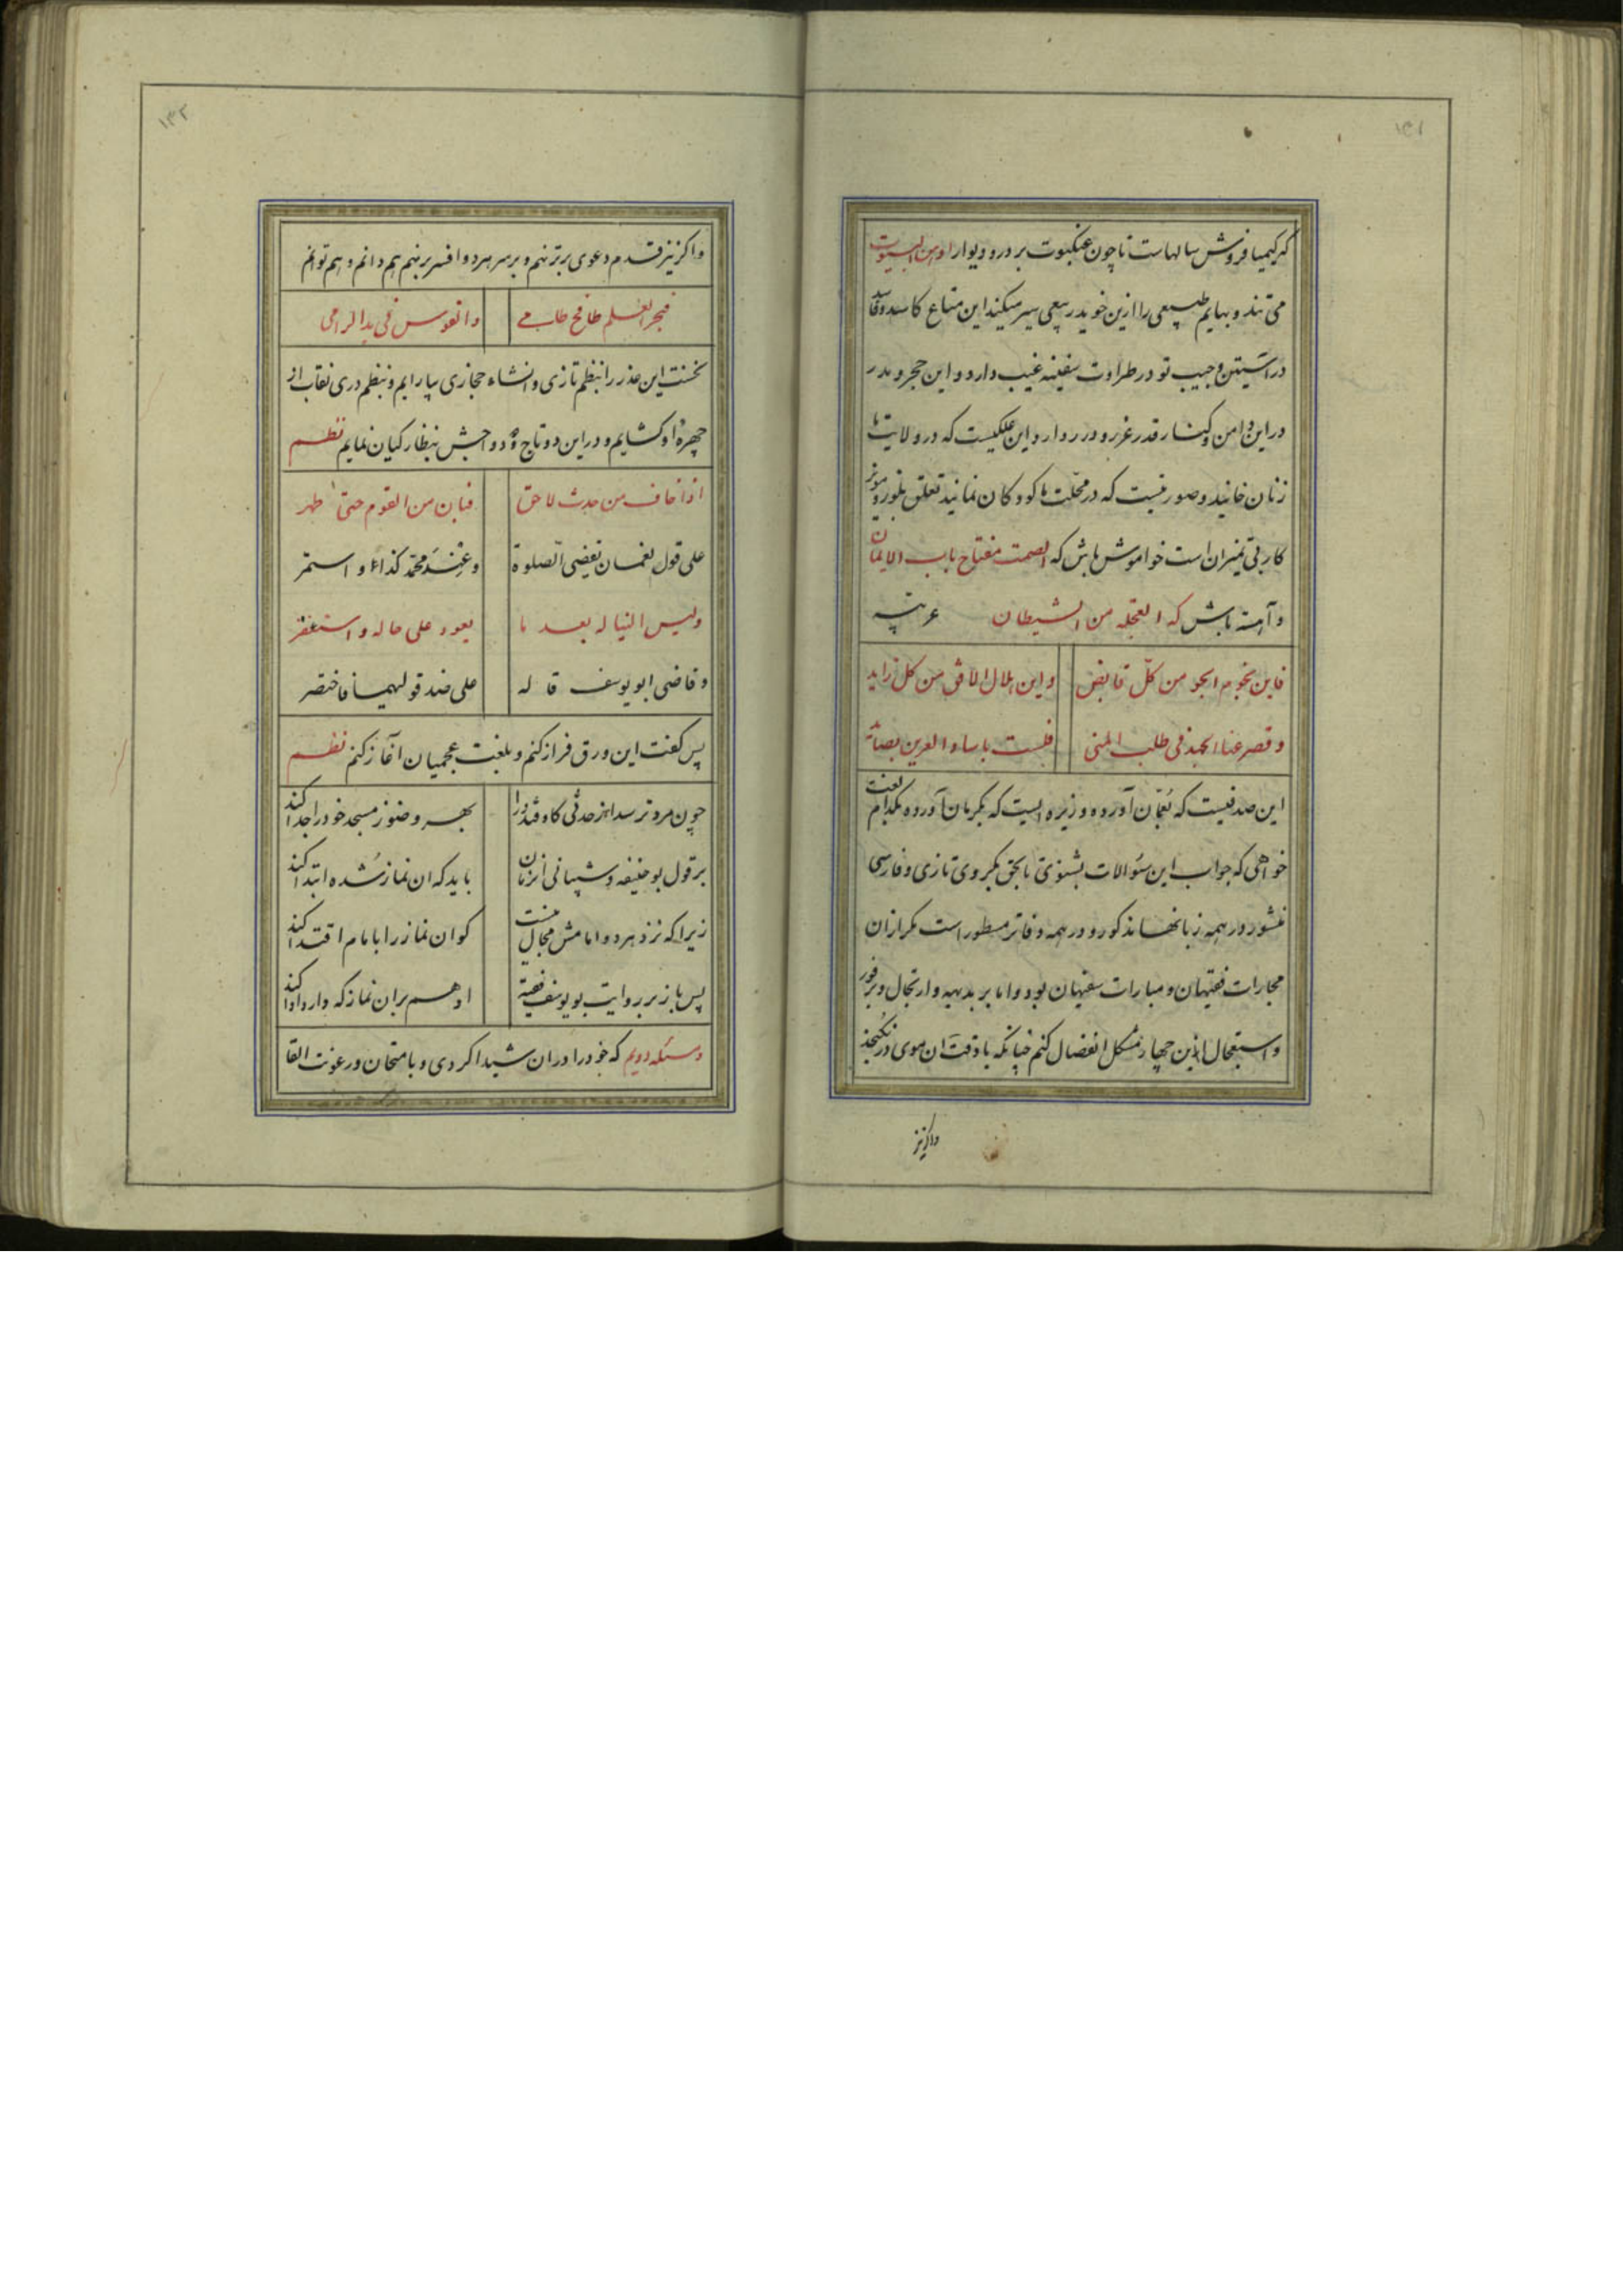 ۱۳۱
کر کیمیا فروش سالهاست تا چون عنکبوت بر در و دیوار اوهن البیوت
می تند و بهایم طبیعی را ازین خوید ربیعی سیر میکند این متاع کاسد و فاسد
در آستین و جیب تو در طراوت سفینه غیب دارد و این حجر و مدر
در این دامن و کنار قدر غرر و درر دارد و این ملکیست که در ولایت ما
زنان خانند و صورتیست که در محلت ما کودکان نمانید تعلق بلور و مویز
کار بی تمیزان است خواموش باش که الصمت مفتاح باب الایمان
و آهسته باش که العجله من الشیطان عربیه
فاین نجوم الجو من کل قابض
واین هلال الافق من کل زاید
و قصر عنا الجد فی طلب المنی
فلست باساد العرین بصائد
این صدفیست که بعمان آورده و زیره ایست که بکرمان آورده بکدام لغت
خواهی که جواب این سئوالات بشنوی تا بحق بگروی تازی و فارسی
و در همه زبانها مذکور و در همه دفاتر مسطور است مکر ازان
مجارات فقیهان و مبارات سفیهان بود و اما بر بدیهه و ارتجال و بر فور
و استعجال ازین چهار مشکل انفصال کنم چنانکه با دقت آن موی در نکنجد
واکر نیز
۱۳۲
واکر نیز قدم دعوی برتر نهم و بر سر هر دو افسر بر نهم هم دانم و هم توانم
فبحر العلم طافح طامی
والقوس فی ید الرامی
نخست این عذر را بنظم تازی و انشاء حجازی بیارایم و بنظم دری نقاب از
چهرهٔ او کشایم و در این دو تاج و دواجش بنظار کیان نمایم نظم
اذا خاف من حدث لاحق
فبان من القوم حتی طهر
علی قول نعمان یقضی الصلوة
و عند محمد کذا و استمر
ولیس البنا له بعد ما
یعود علی حاله و استغفر
و قاضی ابو یوسف قاله
علی ضد قولیهما فاختصر
پس کفت این ورق فراز کنم و بلغت عجمیان آغاز کنم نظم
چون مرد ترسد از حدثی کاوفتد ورا
بهر وضو ز مسجد خود را جدا کند
بر قول بوحنیفه و شیبانی آنزمان
باید که آن نماز شده ابتدا کند
زیرا که نزد هر دو امامش مجال نیست
کو آن نماز را با مام اقتدا کند
پس باز بر روایت بویوسف فقیه
او هم بران نماز که دارد ادا کند
و مسئله دویم که خود را در ان شیدا کردی و بامتحان و رعونت القا